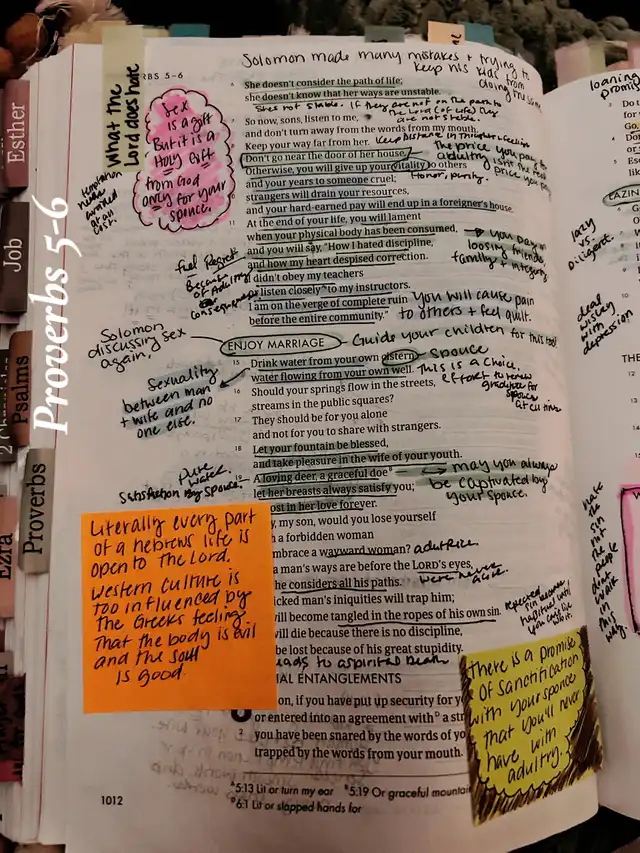 Solomon made many mistakes + trying to
keep his kids from
doing the same
RBS 5-6
What the
Lord does hate
Sex
is a gift
But it is a
Holy Gift
from God
only for your
spouse.
She doesn't consider the path of life;
she doesn't know that her ways are unstable.
She's not stable. If they are not on the path to
the Lord (of Life) they
are not stable.
So now, sons, listen to me,
and don't turn away from the words from my mouth.
Keep your way far from her. Keep Distance in Thoughts + feelings
Don't go near the door of her house.
Otherwise, you will give up your vitality to others
Honor, purity.
The price you pay to
adultery isn't the
price you
and your years to someone cruel;
10 strangers will drain your resources,
and your hard-earned pay will end up in a foreigner's house.
11 At the end of your life, you will lament
when your physical body has been consumed,
and you will say, "How I hated discipline,
and how my heart despised correction.
didn't obey my teachers
listen closely to my instructors.
I am on the verge of complete ruin
before the entire community."
You pay in
loosing friends
family + integrity
feel Regret
Because
of Adultry
consequences
You will cause pain
to others + feel guilt.
Solomon
discussing sex
again.
ENJOY MARRIAGE
Guide your children for this too!
15 Drink water from your own cistern, spouse
water flowing from your own well. This is a choice.
effort to renew
gratitude for
spouse
at all times
Sexuality
between man
+ wife and no
one else.
16 Should your springs flow in the streets,
streams in the public squares?
17 They should be for you alone
and not for you to share with strangers.
18 Let your fountain be blessed,
and take pleasure in the wife of your youth.
Pure
water
Satisfaction By Spouse
19 A loving deer, a graceful doe
let her breasts always satisfy you;
ost in her love forever.
may you always
be captivated by
your spouse.
y, my son, would you lose yourself
h a forbidden woman
mbrace a wayward woman? adultrice
a man's ways are before the LORD's eyes,
he considers all his paths. were never
alone.
icked man's iniquities will trap him;
will become tangled in the ropes of his own sin.
will die because there is no discipline,
be lost because of his great stupidity.
leads to a spiritual Death
repeated
sin becomes
habitual until
you can't live
without it.
Literally every part
of a hebrews life is
open to The Lord.
Western culture is
too influenced by
the Greeks feeling
That the body is evil
and the soul
is good.
IAL ENTANGLEMENTS
on, if you have put security for yo
or entered into an agreement with a str
3 you have been snared by the words of yo
trapped by the words from your mouth.
There is a promise
of sanctification
with your spouse
that you'll never
have with
adultry.
1012
5:13 Lit or turn my ear 5:19 Or graceful mountai
6:1 Lit or slapped hands for
Esther
Job
Psalms
Proverbs
Ezra
Proverbs 5-6
loaning
promi
lazy
vs.
Diligent.
deal
wisley
with
depression